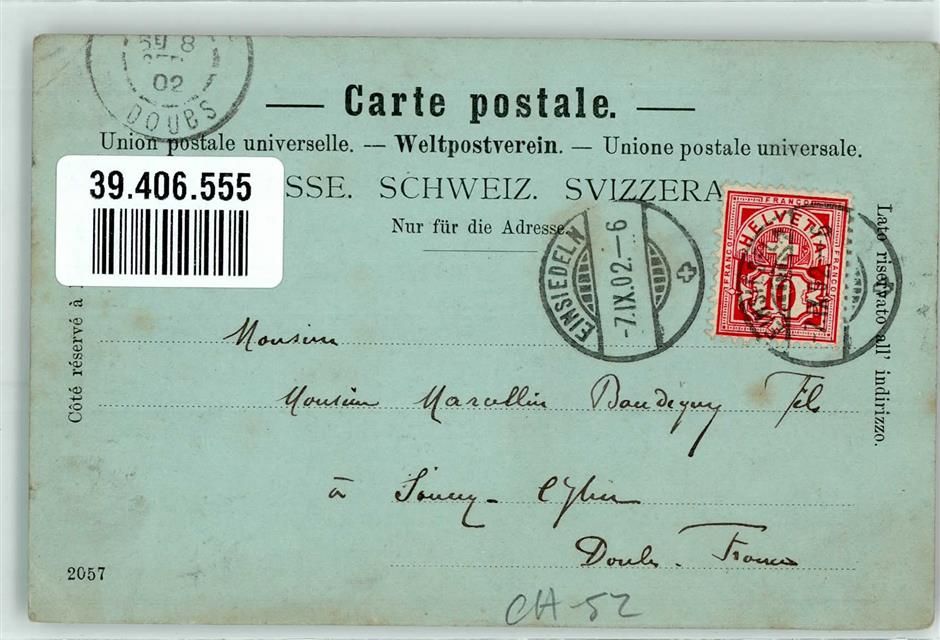 8
02
DOUBS
Carte postale.
Union postale universelle. — Weltpostverein. — Unione postale universale.
39.406.555
SSE. SCHWEIZ. SVIZZERA
Nur für die Adresse.
EINSIEDELN
-7.IX.02.-6
FRANCO
HELVETIA
FRANCO
FRANCO
10
Côté réservé à
Lato riservato all' indirizzo.
Monsieur
Monsieur Marcellin Fils
à
Doubs. France
2057
CH-52